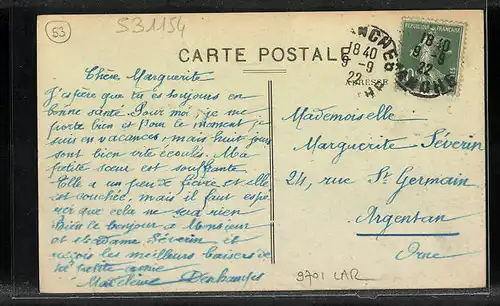 53
S31154
CARTE POSTALE
ADRESSE
18 40
9 -9
22
REPUBLIQUE FRANÇAISE
18 40
9 -9
22
Chère Marguerite
J'espère que tu es toujours en
bonne santé. Pour moi, je me
porte bien et pour le moment je
suis en vacances, mais huit jours
sont bien vite écoulés. Ma
petite sœur est souffrante
Elle a un peu de fièvre et elle
est couchée, mais il faut espé
rer que cela ne sera rien
Bien le bonjour à Monsieur
et et Dame Séverin et
reçois les meilleurs baisers de
ta petite amie
Madeleine
Mademoiselle
Marguerite Séverin
24, rue St Germain
Argentan
Orne
9701 LAR